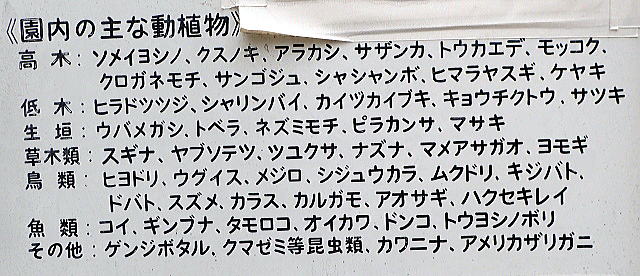 《園内の主な動植物》
高木：ソメイヨシノ、クスノキ、アラカシ、サザンカ、トウカエデ、モッコク、
クロガネモチ、サンゴジュ、シャシャンボ、ヒマラヤスギ、ケヤキ
低木：ヒラドツツジ、シャリンバイ、カイヅカイブキ、キョウチクトウ、サツキ
生垣：ウバメガシ、トベラ、ネズミモチ、ピラカンサ、マサキ
草木類：スギナ、ヤブソテツ、ツユクサ、ナズナ、マメアサガオ、ヨモギ
鳥類：ヒヨドリ、ウグイス、メジロ、シジュウカラ、ムクドリ、キジバト、
ドバト、スズメ、カラス、カルガモ、アオサギ、ハクセキレイ
魚類：コイ、ギンブナ、タモロコ、オイカワ、ドンコ、トウヨシノボリ
その他：ゲンジボタル、クマゼミ等昆虫類、カワニナ、アメリカザリガニ